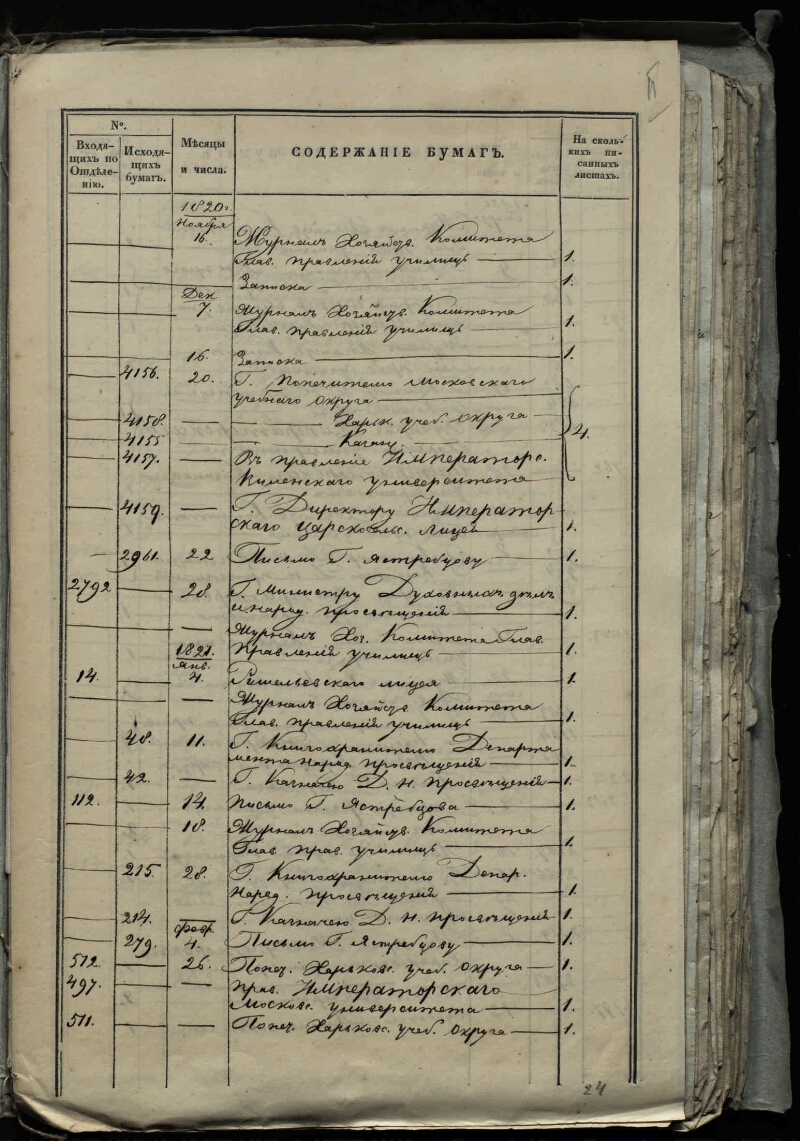 №.
Входя-
щихъ по
Отдѣле-
нію.
Исходя-
щихъ
бумагъ.
Мѣсяцы
и числа.
СОДЕРЖАНІЕ БУМАГЪ.
На сколь-
кихъ пи-
санныхъ
листахъ.
1820 г.
Ноября
16. Журналъ Хозяйств. Комитета
Глав. Правленій училищъ — 1.
Записка — 1.
Дек.
7. Журналъ Хозяйств. Комитета
Глав. Правленій училищъ — 1.
16. Записка — 1.
4156. 20. Г. Попечителю Московскаго
учебнаго округа
4158. — Харьк. учеб. округа — 4.
4155 — Казанс.
4157. — Въ правленіе Императорс.
Виленскаго университета
4159. — Г. Директору Император-
скаго Царскосельс. Лицея — 1.
2961. 22 Письмо Г. Ястребцову — 1.
2792 — 28. Г. Министру Духовныхъ дѣлъ
и народ. просвѣщеній — 1.
Журналъ Хоз. Комитета Глав.
Правленій училищъ — 1.
1821.
Янв.
14. — 4. Ришельевскаго лицея — 1.
Журналъ Хозяйств. Комитета
Глав. Правленій училищъ — 1.
48. 11. Г. Книгохранителю Департа
мента народ. просвѣщеній — 1.
42. — Г. Казначею Д. Н. просвѣщеній — 1.
112. — 14. Письмо Г. Ястребцова — 1.
18. Журналъ Хозяйств. Комитета
Глав. Прав. училищъ — 1.
215. 28. Г. Книгохранителю Депар.
Народ. просвѣщеній — 1.
214. — Г. Казначею Д. Н. просвѣщеній 1.
Февр.
279. 4. Письмо Г. Ястребцову — 1.
512. — 26. Попеч. Харьковс. учеб. округа — 1.
497. — Прав. Императорскаго
Московс. университета — 1.
511. — Попеч. Харьковс. учеб. округа — 1.
24